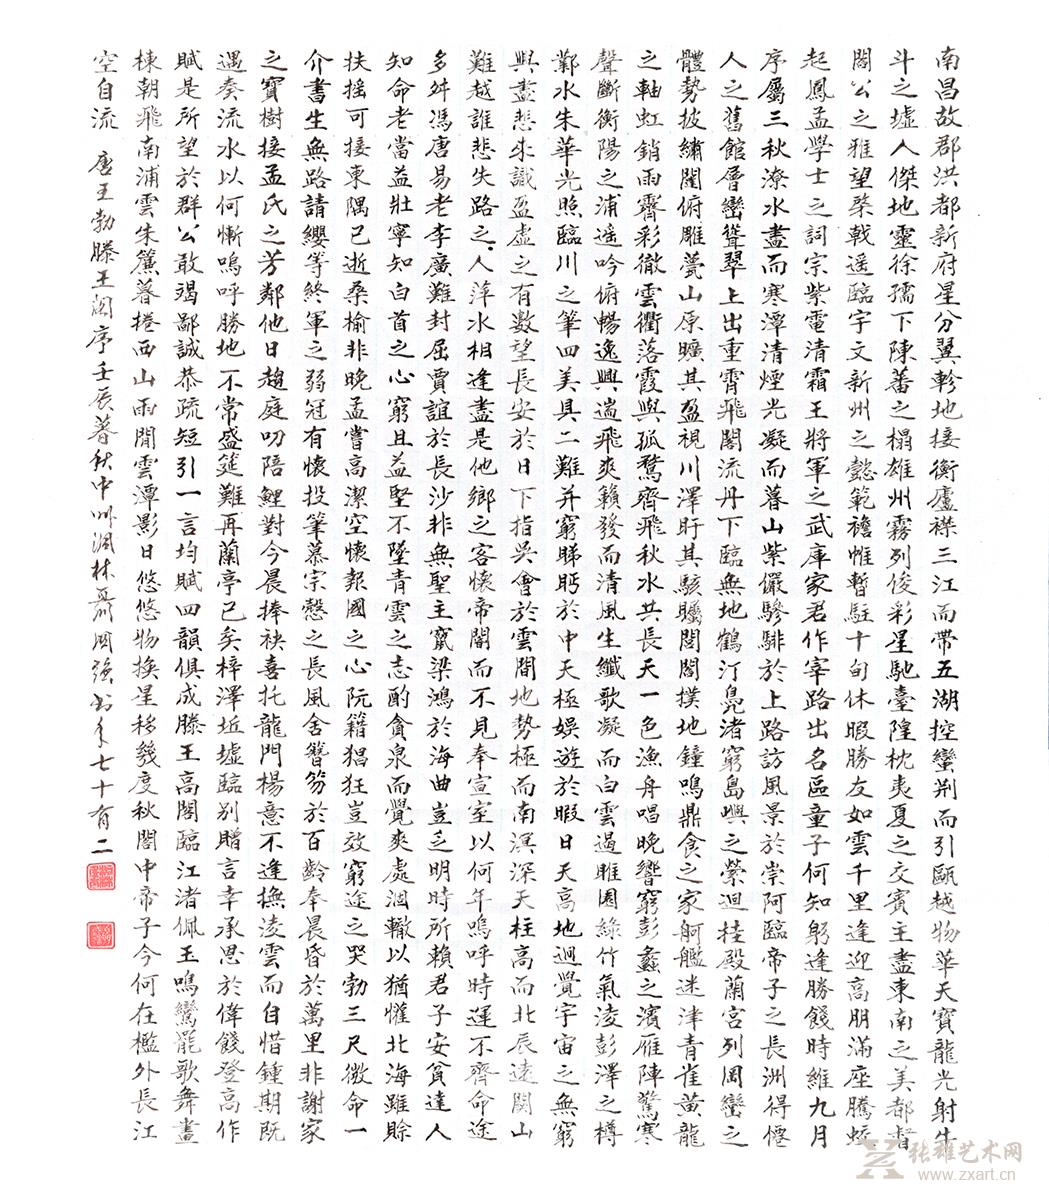 南昌故郡洪都新府星分翼軫地接衡廬襟三江而帶五湖控蠻荆而引甌越物華天寶龍光射牛
斗之墟人傑地靈徐孺下陳蕃之榻雄州霧列俊彩星馳臺隍枕夷夏之交賓主盡東南之美都督
閻公之雅望棨戟遥臨宇文新州之懿範襜帷暫駐十旬休暇勝友如雲千里逢迎高朋滿座騰蛟
起鳳孟學士之詞宗紫電清霜王將軍之武庫家君作宰路出名區童子何知躬逢勝餞時維九月
序屬三秋潦水盡而寒潭清煙光凝而暮山紫儼驂騑於上路訪風景於崇阿臨帝子之長洲得僊
人之舊館層巒聳翠上出重霄飛閣流丹下臨無地鶴汀鳧渚窮島嶼之縈迴桂殿蘭宮列岡巒之
體勢披繡闥俯雕甍山原曠其盈視川澤盱其駭矚閭閻撲地鐘鳴鼎食之家舸艦迷津青雀黃龍
之軸虹銷雨霽彩徹雲衢落霞與孤鶩齊飛秋水共長天一色漁舟唱晚響窮彭蠡之濱雁陣驚寒
聲斷衡陽之浦遥吟俯暢逸興遄飛爽籟發而清風生纖歌凝而白雲遏睢園綠竹氣淩彭澤之樽
鄴水朱華光照臨川之筆四美具二難并窮睇眄於中天極娛遊於暇日天高地迥覺宇宙之無窮
興盡悲來識盈虛之有數望長安於日下指吳會於雲間地勢極而南溟深天柱高而北辰遠關山
難越誰悲失路之人萍水相逢盡是他鄉之客懷帝閽而不見奉宣室以何年嗚呼時運不齊命途
多舛馮唐易老李廣難封屈賈誼於長沙非無聖主竄梁鴻於海曲豈乏明時所賴君子安貧達人
知命老當益壯寧知白首之心窮且益堅不墜青雲之志酌貪泉而覺爽處涸轍以猶懽北海雖賒
扶搖可接東隅已逝桑榆非晚孟嘗高潔空懷報國之心阮籍猖狂豈效窮途之哭勃三尺微命一
介書生無路請纓等終軍之弱冠有懷投筆慕宗慤之長風舍簪笏於百齡奉晨昏於萬里非謝家
之寶樹接孟氏之芳鄰他日趨庭叨陪鯉對今晨捧袂喜托龍門楊意不逢撫淩雲而自惜鍾期既
遇奏流水以何慚嗚呼勝地不常盛筵難再蘭亭已矣梓澤坵墟臨别贈言幸承恩於偉餞登高作
賦是所望於群公敢竭鄙誠恭疏短引一言均賦四韻俱成滕王高閣臨江渚佩玉鳴鸞罷歌舞畫
棟朝飛南浦雲朱簾暮捲西山雨閒雲潭影日悠悠物換星移幾度秋閣中帝子今何在檻外長江
空自流 唐王勃滕王閣序壬辰暮秋中州泗林聶國強書年七十有二
张雄艺术网
www.zxart.cn